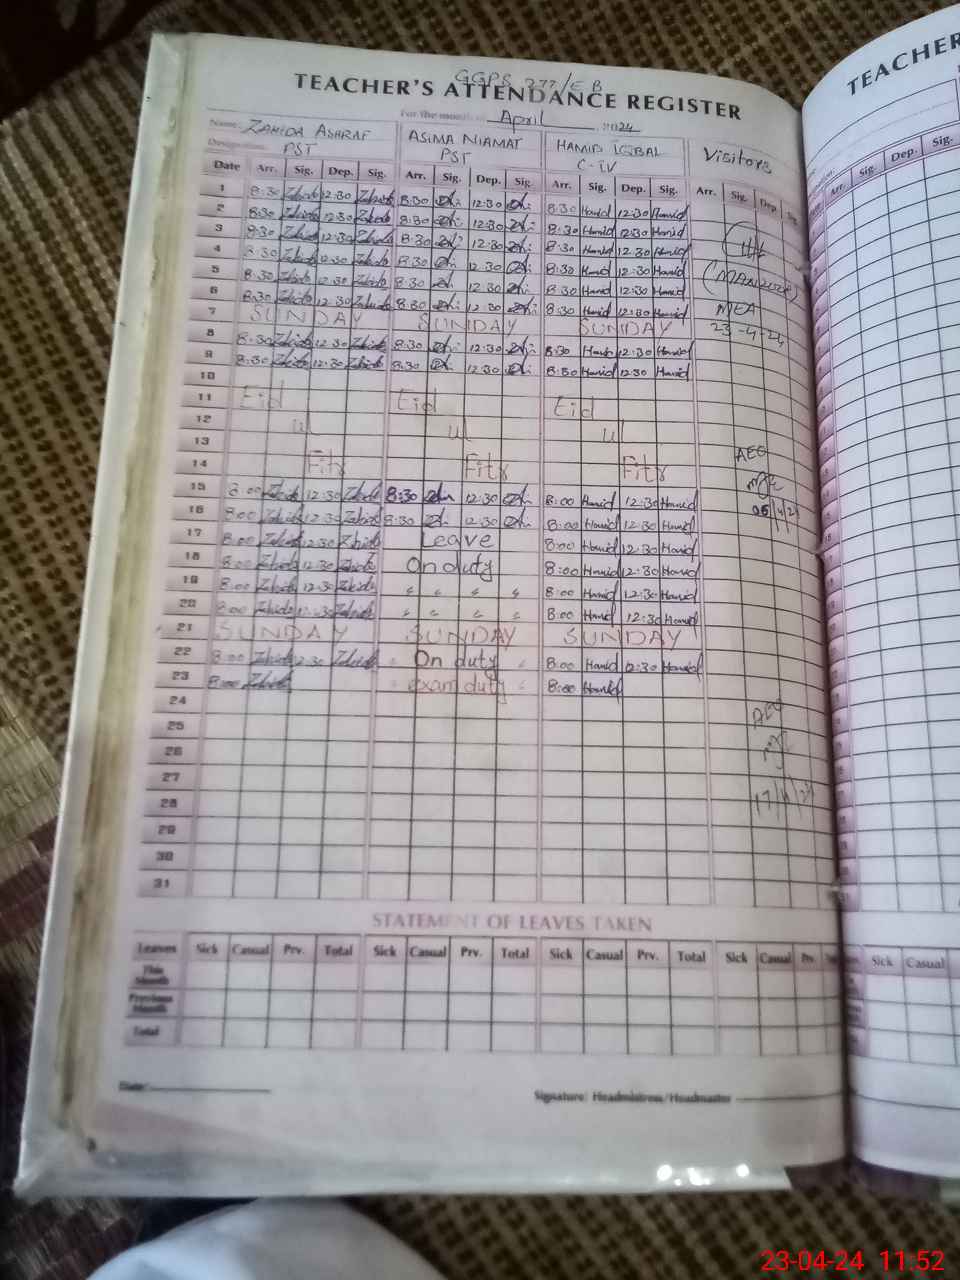 GGPS 277/E B
TEACHER'S ATTENDANCE REGISTER
For the month of April 2024
Name: ZAHIDA ASHRAF ASIMA NIAMAT HAMID IQBAL Visitors
Designation: PST PST C-IV
Date Arr. Sig. Dep. Sig. Arr. Sig. Dep. Sig. Arr. Sig. Dep. Sig. Arr. Sig. Dep. Sig.
1 8:30 Zahida 12:30 Zahida 8:30 12:30 8:30 Hamid 12:30 Hamid
2 8:30 Zahida 12:30 Zahida 8:30 12:30 8:30 Hamid 12:30 Hamid
3 8:30 Zahida 12:30 Zahida 8:30 12:30 8:30 Hamid 12:30 Hamid
4 8:30 Zahida 12:30 Zahida 8:30 12:30 8:30 Hamid 12:30 Hamid
5 8:30 Zahida 12:30 Zahida 8:30 12:30 8:30 Hamid 12:30 Hamid
6 8:30 Zahida 12:30 Zahida 8:30 12:30 8:30 Hamid 12:30 Hamid MEA
7 SUNDAY SUNDAY SUNDAY 23-4-24
8 8:30 Zahida 12:30 Zahida 8:30 12:30 8:30 Hamid 12:30 Hamid
9 8:30 Zahida 12:30 Zahida 8:30 12:30 8:30 Hamid 12:30 Hamid
10
11 Eid Eid Eid
12 ul ul ul
13 AEO
14 Fitr Fitr Fitr
15 8:00 Zahida 12:30 Zahida 8:30 12:30 8:00 Hamid 12:30 Hamid 06/4/24
16 8:00 Zahida 12:30 Zahida 8:30 12:30 8:00 Hamid 12:30 Hamid
17 8:00 Zahida 12:30 Zahida Leave 8:00 Hamid 12:30 Hamid
18 8:00 Zahida 12:30 Zahida On duty 8:00 Hamid 12:30 Hamid
19 8:00 Zahida 12:30 Zahida " " " " 8:00 Hamid 12:30 Hamid
20 8:00 Zahida 12:30 Zahida " " " " 8:00 Hamid 12:30 Hamid
21 SUNDAY SUNDAY SUNDAY
22 8:00 Zahida 12:30 Zahida " On duty " 8:00 Hamid 12:30 Hamid
23 8:00 Zahida " exam duty " 8:00 Hamid
24 AEO
25
26
27 17/4/24
28
29
30
31
STATEMENT OF LEAVES TAKEN
Leaves Sick Casual Prv. Total Sick Casual Prv. Total Sick Casual Prv. Total Sick Casual Prv.
This Month
Previous Month
Total
Date: Signature: Headmistress/Headmaster
TEACHER
Arr. Sig. Dep. Sig.
Sick Casual
23-04-24 11:52